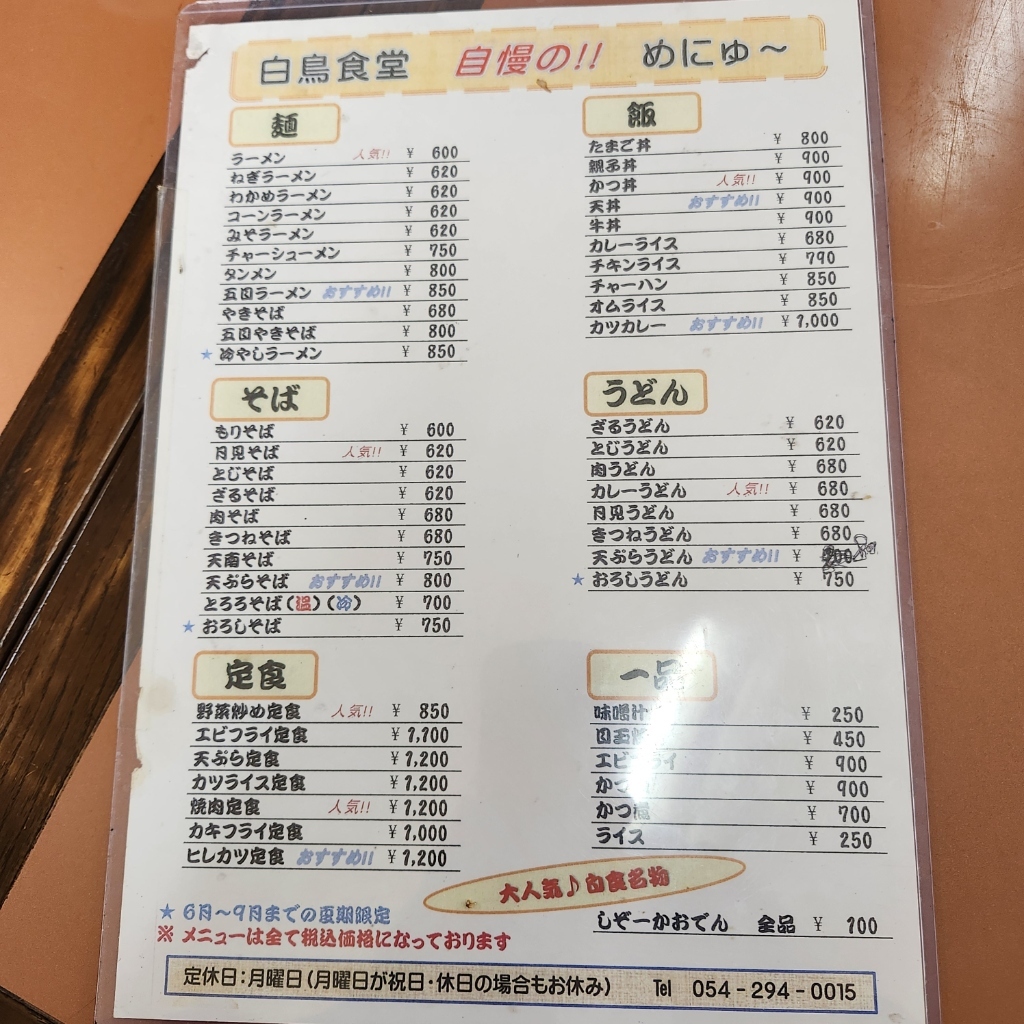 白鳥食堂 自慢の!! めにゅ～
麺
ラーメン 人気!! ￥ 600
ねぎラーメン ￥ 620
わかめラーメン ￥ 620
コーンラーメン ￥ 620
みそラーメン ￥ 620
チャーシューメン ￥ 750
タンメン ￥ 800
五目ラーメン おすすめ!! ￥ 850
やきそば ￥ 680
五目やきそば ￥ 800
★ 冷やしラーメン ￥ 850
飯
たまご丼 ￥ 800
親子丼 ￥ 900
かつ丼 人気!! ￥ 900
天丼 おすすめ!! ￥ 900
牛丼 ￥ 900
カレーライス ￥ 680
チキンライス ￥ 790
チャーハン ￥ 850
オムライス ￥ 850
カツカレー おすすめ!! ￥ 1,000
そば
もりそば ￥ 600
月見そば 人気!! ￥ 620
とじそば ￥ 620
ざるそば ￥ 620
肉そば ￥ 680
きつねそば ￥ 680
天南そば ￥ 750
天ぷらそば おすすめ!! ￥ 800
とろろそば（温）（冷） ￥ 700
★ おろしそば ￥ 750
うどん
ざるうどん ￥ 620
とじうどん ￥ 620
肉うどん ￥ 680
カレーうどん 人気!! ￥ 680
月見うどん ￥ 680
きつねうどん ￥ 680
天ぷらうどん おすすめ!! ￥
★ おろしうどん ￥ 750
定食
野菜炒め定食 人気!! ￥ 850
エビフライ定食 ￥ 1,100
天ぷら定食 ￥ 1,200
カツライス定食 ￥ 1,200
焼肉定食 人気!! ￥ 1,200
カキフライ定食 ￥ 1,000
ヒレカツ定食 おすすめ!! ￥ 1,200
一品
味噌汁 ￥ 250
￥ 450
エビフライ ￥ 900
かつ ￥ 900
かつ ￥ 700
ライス ￥ 250
大人気♪白食名物
しぞーかおでん 全品 ￥ 100
★ 6月～9月までの夏期限定
※ メニューは全て税込価格になっております
定休日：月曜日（月曜日が祝日・休日の場合もお休み） Tel 054－294－0015